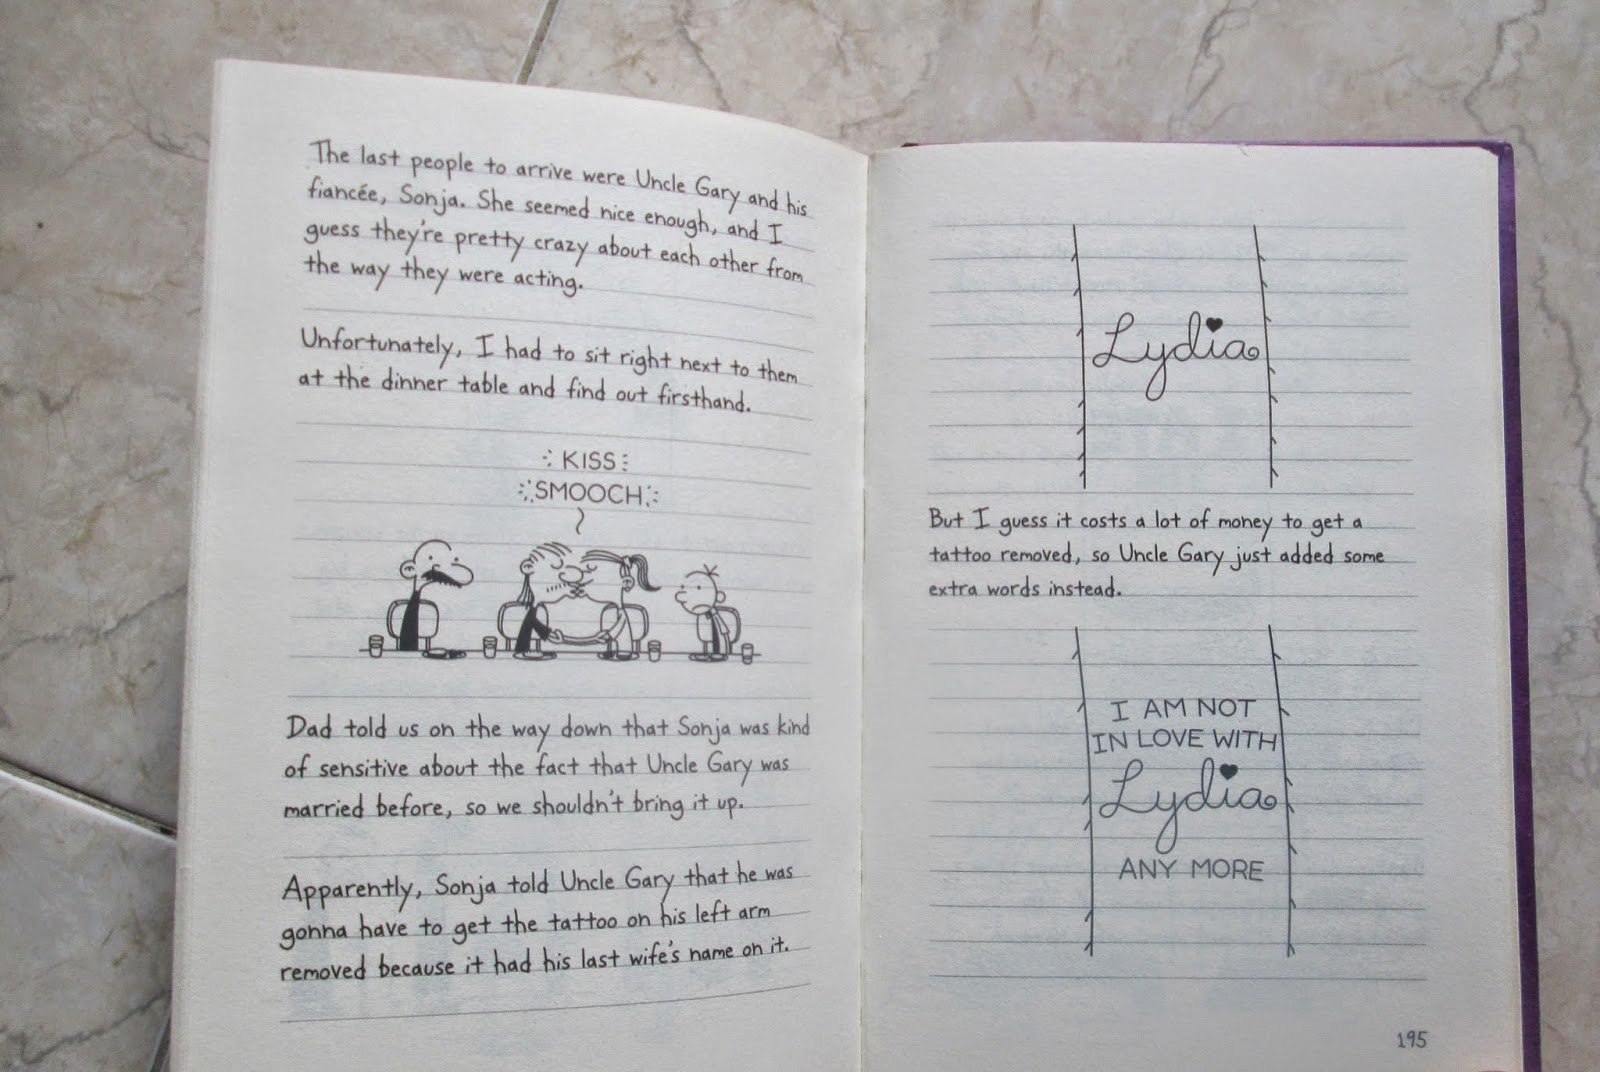 The last people to arrive were Uncle Gary and his
fiancée, Sonja. She seemed nice enough, and I
guess they're pretty crazy about each other from
the way they were acting.
Unfortunately, I had to sit right next to them
at the dinner table and find out firsthand.
KISS
SMOOCH
Dad told us on the way down that Sonja was kind
of sensitive about the fact that Uncle Gary was
married before, so we shouldn't bring it up.
Apparently, Sonja told Uncle Gary that he was
gonna have to get the tattoo on his left arm
removed because it had his last wife's name on it.
Lydia
But I guess it costs a lot of money to get a
tattoo removed, so Uncle Gary just added some
extra words instead.
I AM NOT
IN LOVE WITH
Lydia
ANY MORE
195